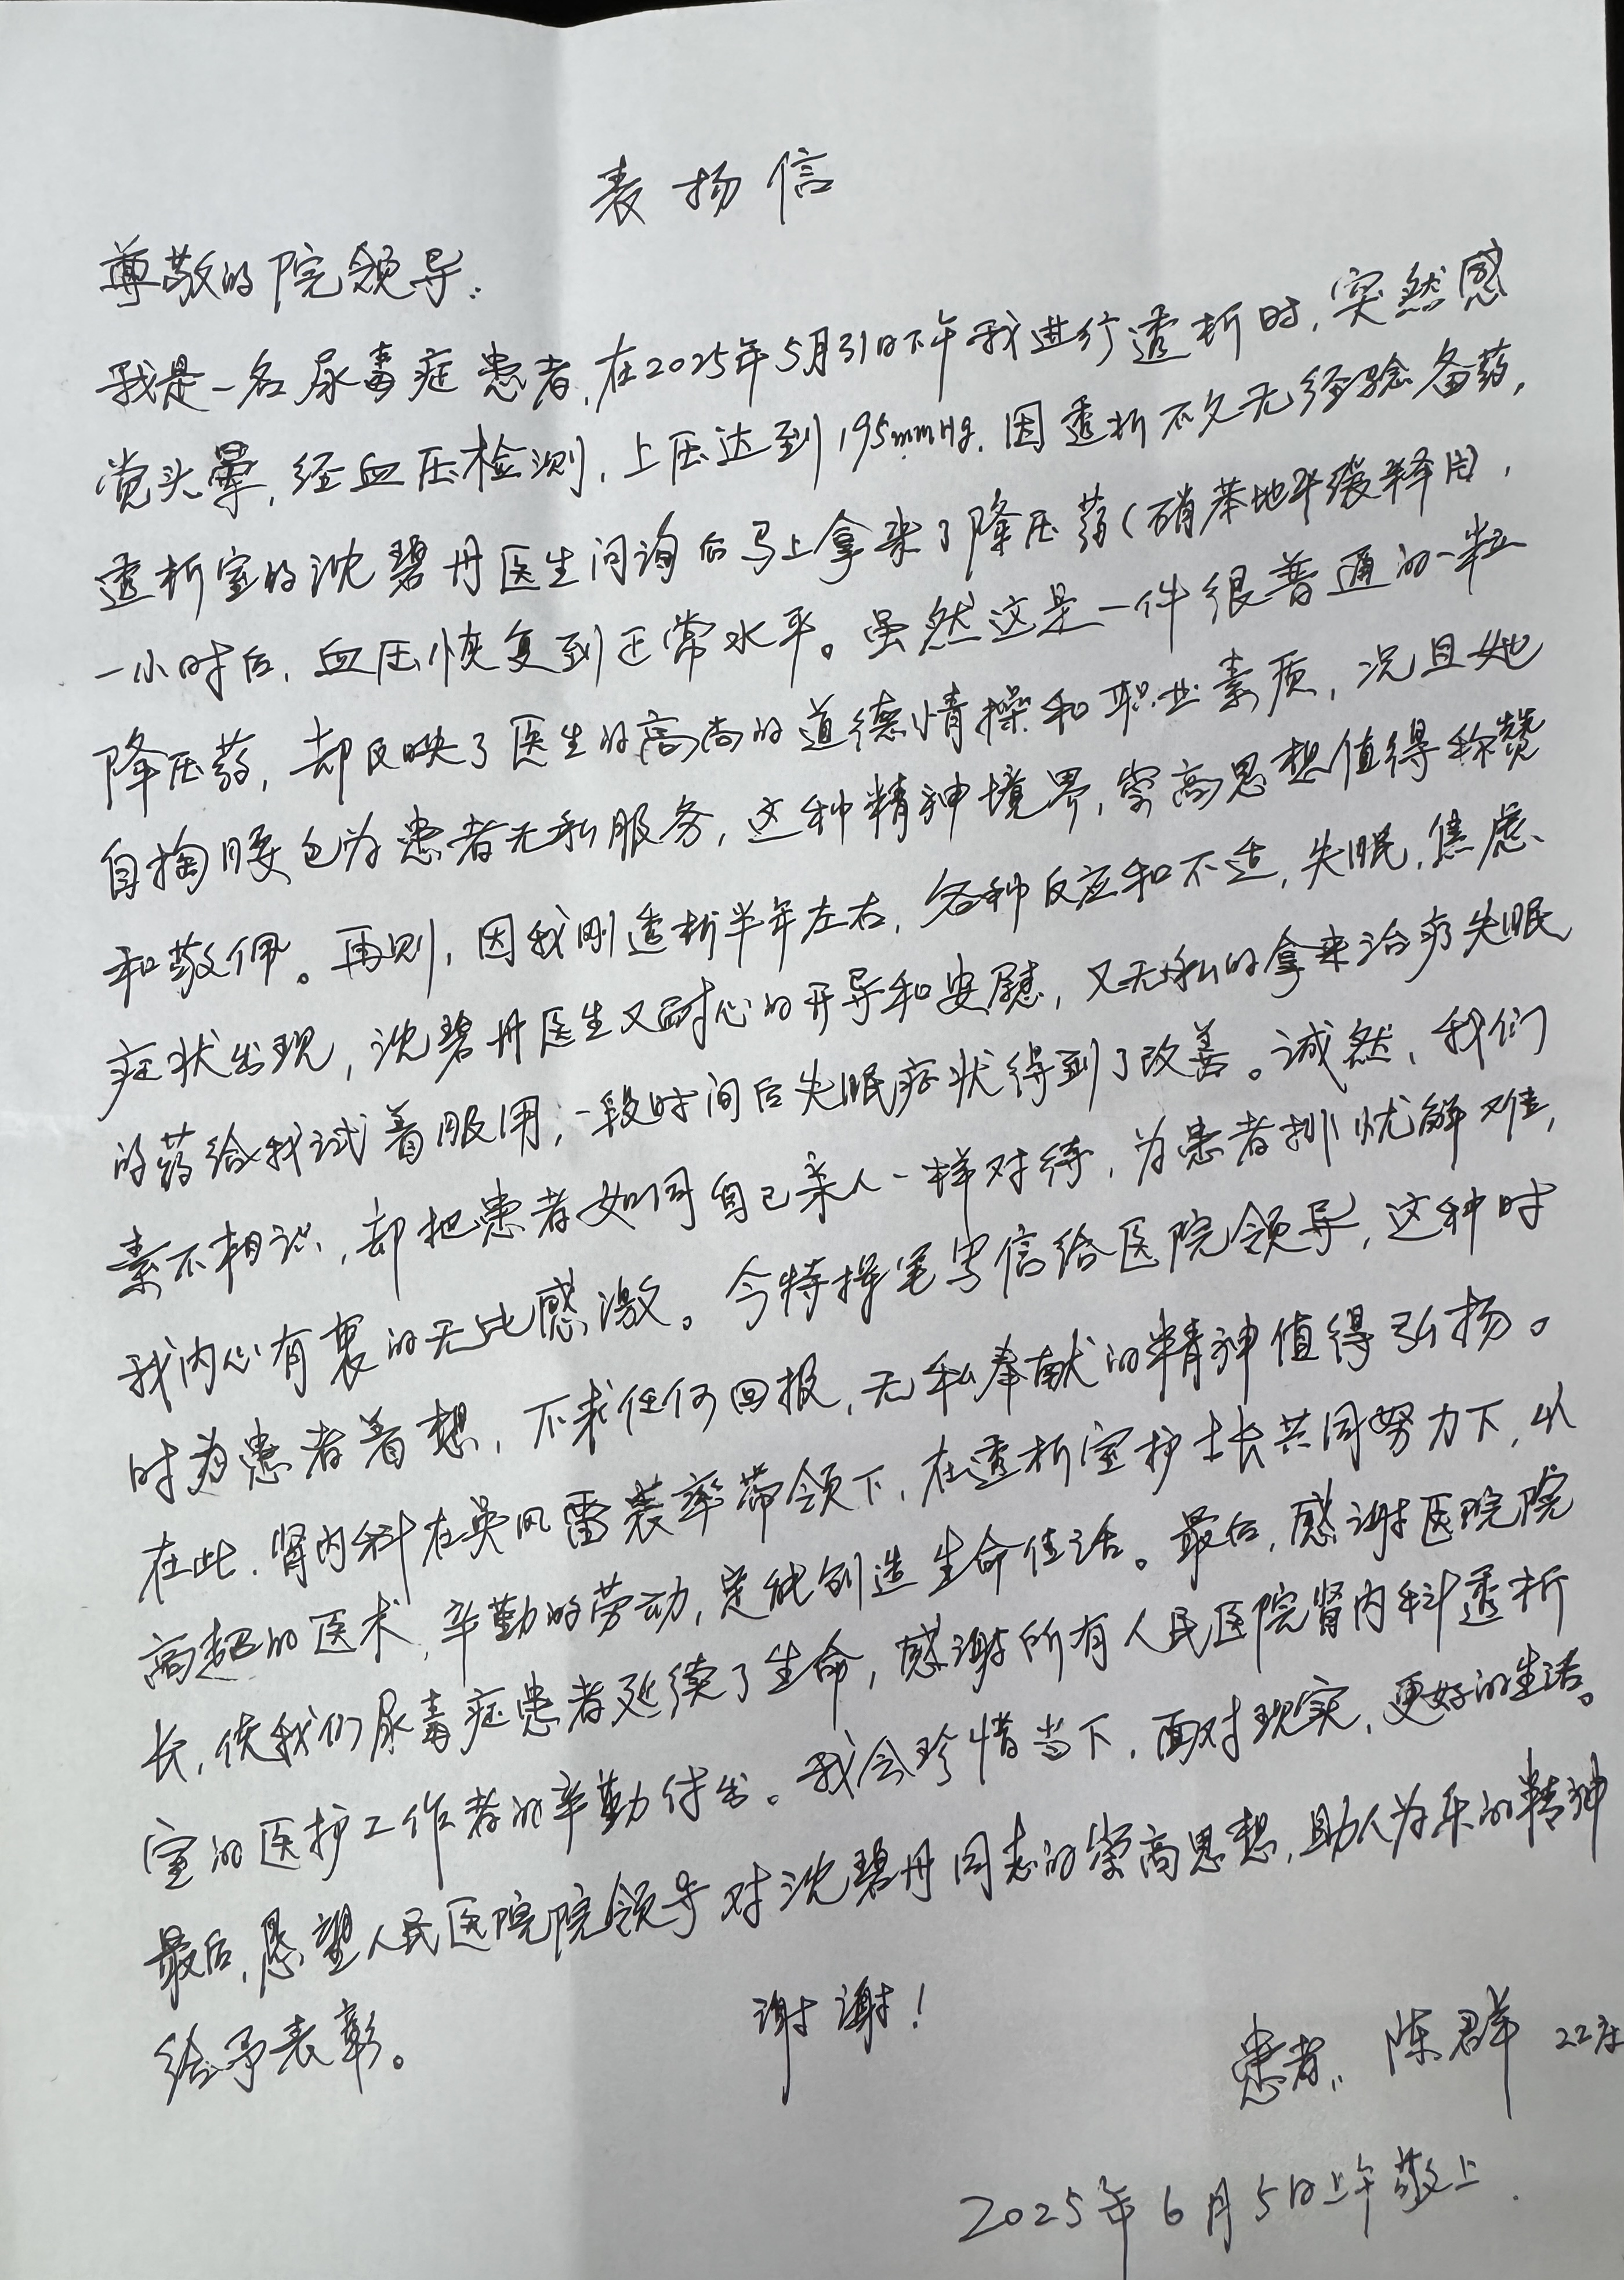 表扬信
尊敬的院领导:
我是一名尿毒症患者,在2025年5月31日下午我进行透析时,突然感
觉头晕,经血压检测,上压达到195mmHg.因透析不久无经验备药,
透析室的沈碧丹医生问询后马上拿来了降压药(硝苯地平缓释片),
一小时后,血压恢复到正常水平。虽然这是一件很普通的一粒
降压药,却反映了医生的高尚的道德情操和职业素质,况且她
自掏腰包为患者无私服务,这种精神境界,崇高思想值得称赞
和敬佩。再则,因我刚透析半年左右,各种反应和不适,失眠,焦虑、
症状出现,沈碧丹医生又耐心的开导和安慰,又无私的拿来治疗失眠
的药给我试着服用;一段时间后失眠症状得到了改善。诚然,我们
素不相识,却把患者如同自己亲人一样对待,为患者排忧解难,
我内心有衷的无比感激。今特提笔写信给医院领导,这种时
时为患者着想,不求任何回报,无私奉献的精神值得弘扬。
在此.肾内科在吴风雷裴率带领下,在透析室护士长共同努力下,以
高超的医术,辛勤的劳动,定能创造生命佳话。最后,感谢医院院
长,使我们尿毒症患者延续了生命,感谢所有人民医院肾内科透析
室的医护工作者的辛勤付出。我会珍惜当下,面对现实,更好的生活。
最后,恳望人民医院院领导对沈碧丹同志的崇高思想,助人为乐的精神
给予表彰。
谢谢!
患者:陈君羊 22床
2025年6月5日上午敬上.